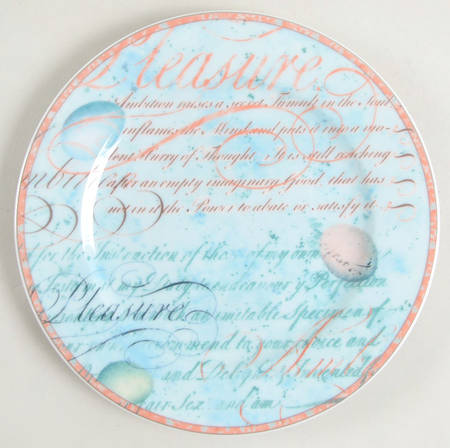 Pleasure
Ambition raises a secret Tumult in the Soul
inflames the Mind and puts it into a vio-
lent Hurry of Thought. It is still reaching
after an empty imaginary Good, that has
not in it the Power to abate or satisfy it.
for the Instruction of those of my own
my endeavour Perfection
Pleasure inimitable Specimen of
commend to your Choice and
and Delight
fair Sex. and am